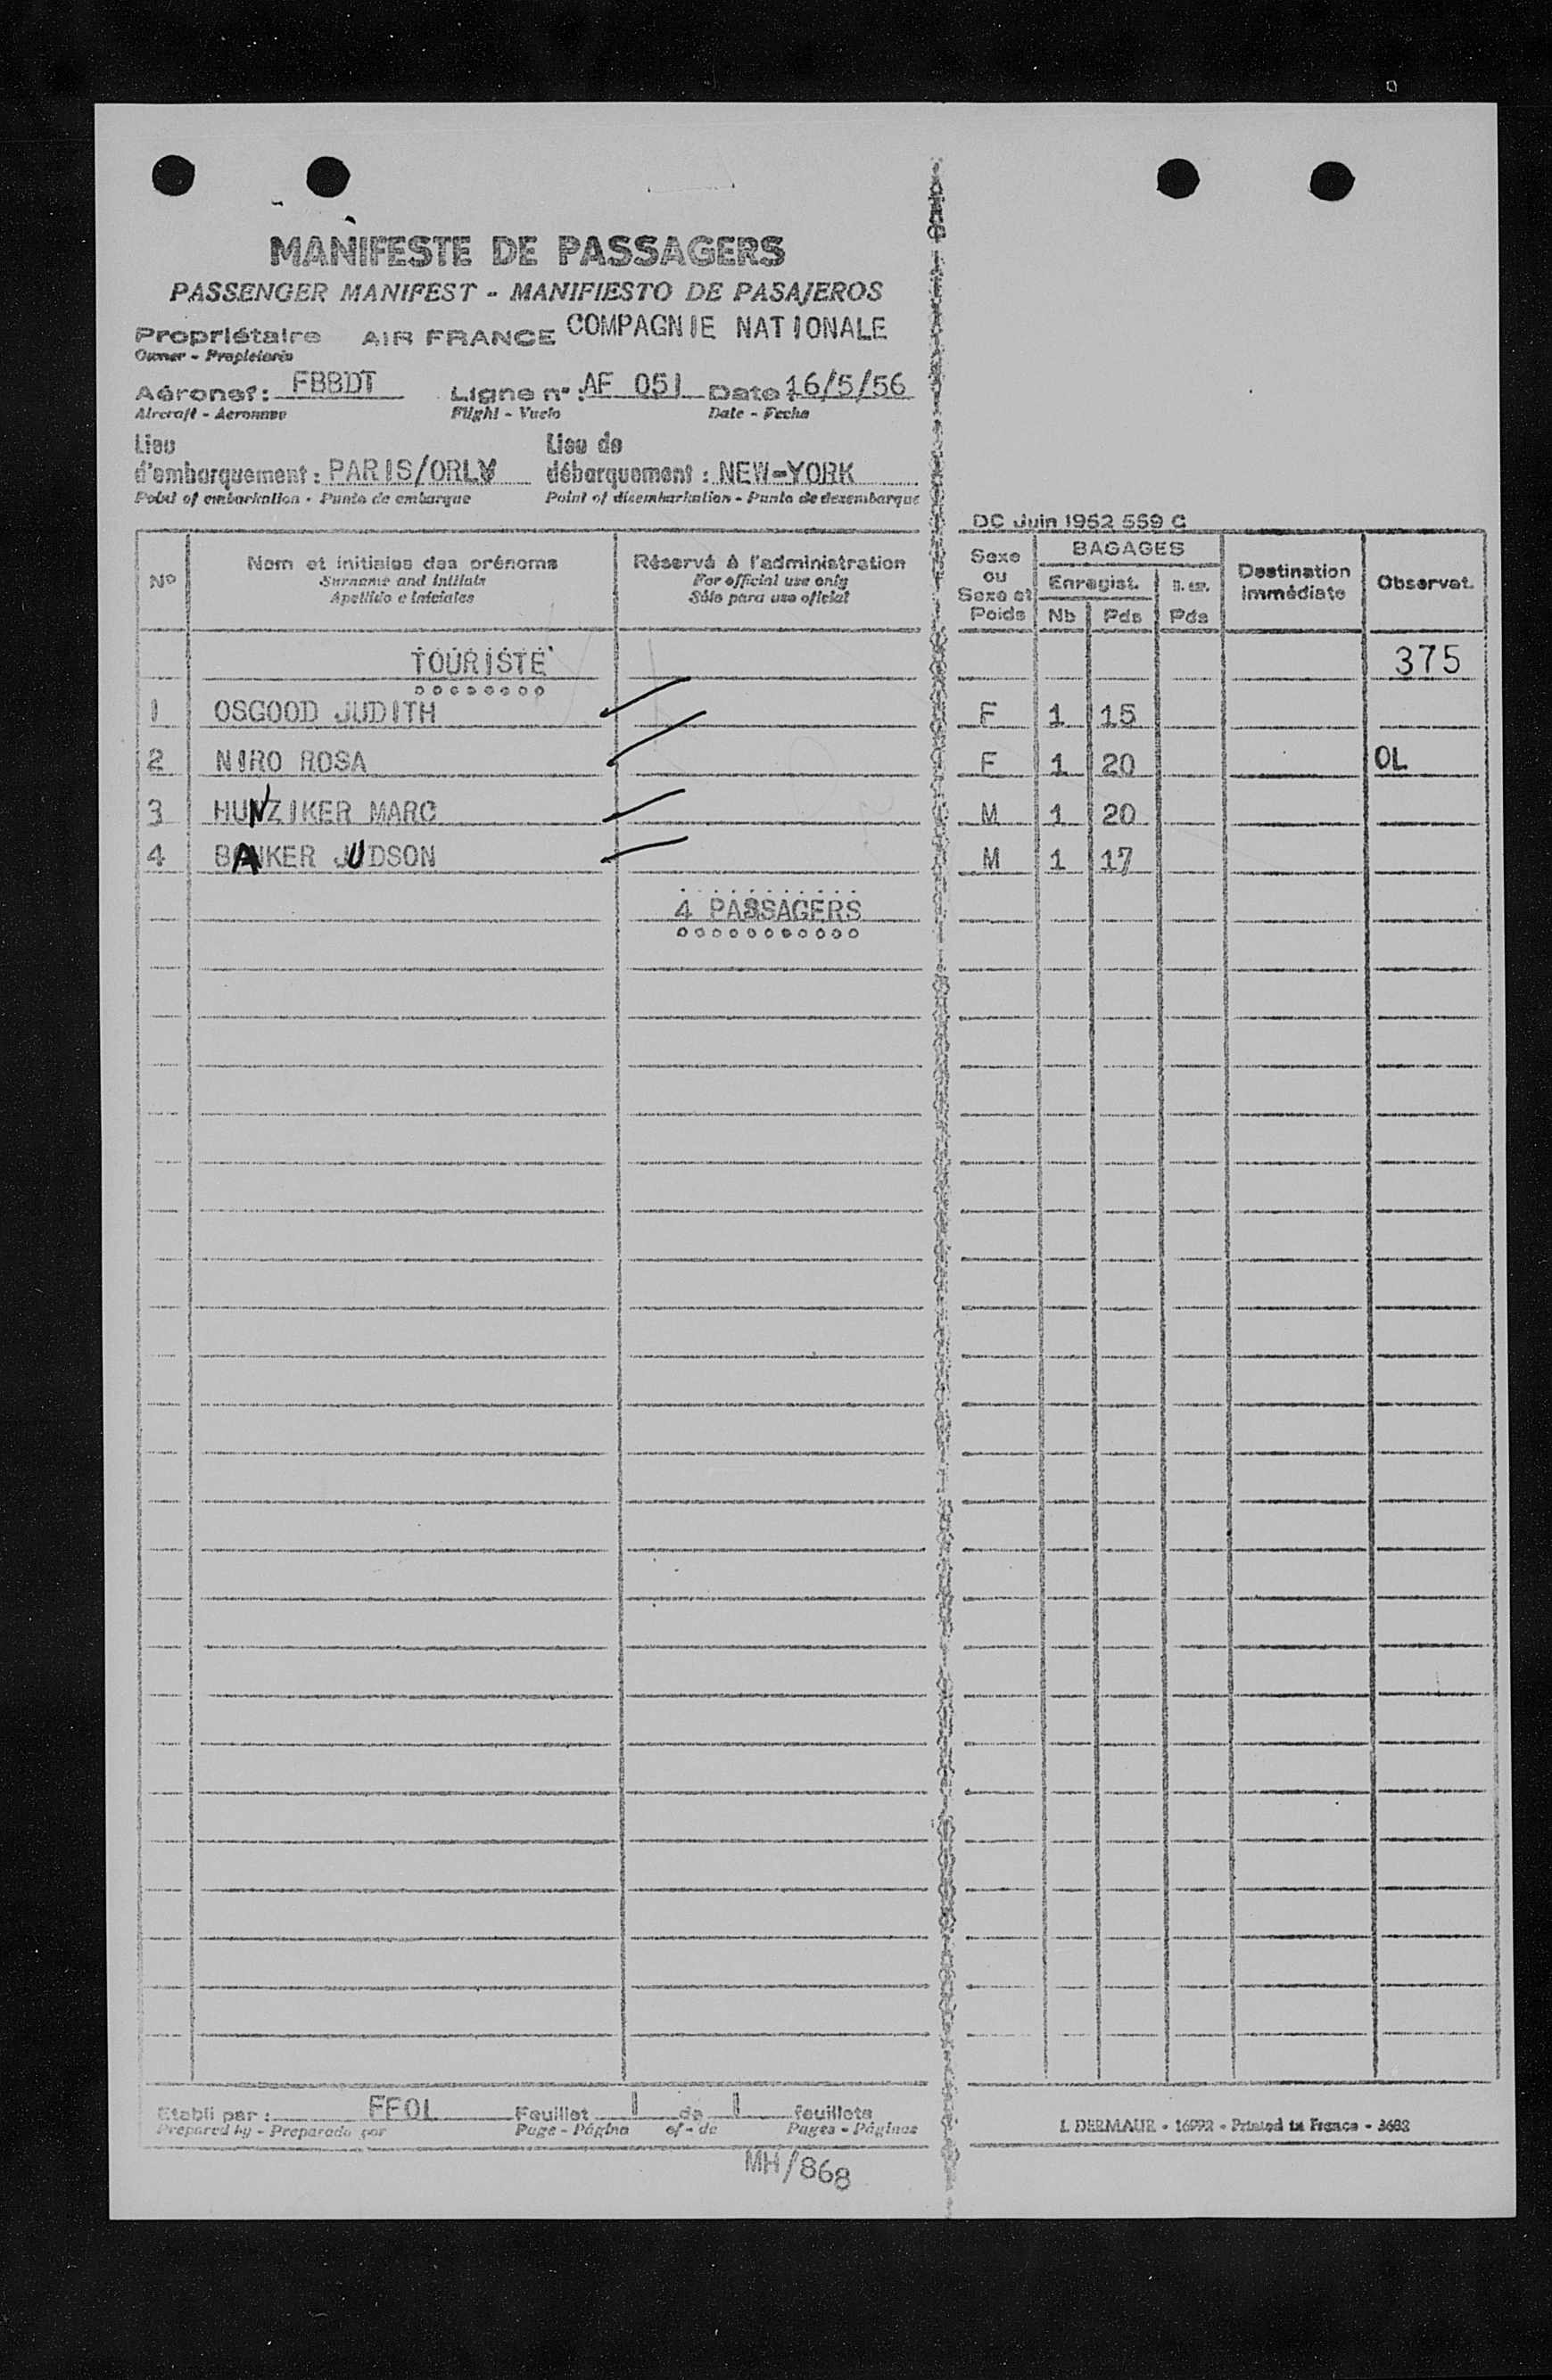 MANIFESTE DE PASSAGERS
PASSENGER MANIFEST - MANIFIESTO DE PASAJEROS
Propriétaire AIR FRANCE COMPAGNIE NATIONALE
Owner - Propietario
Aéronef: FBBDT Ligne n°: AF 051 Date: 16/5/56
Aircraft - Aeronave Flight - Vuelo Date - Fecha
Lieu d'embarquement: PARIS/ORLY Lieu de débarquement: NEW-YORK
Point of embarkation - Punto de embarque Point of disembarkation - Punto de desembarque
DC Juin 1952 559 C
N° Nom et initiales des prénoms Réservé à l'administration Sexe ou Sexe et Poids BAGAGES Destination immédiate Observat.
Surname and initials For official use only Enregist.
Apellido e iniciales Sólo para uso oficial Nb Pds Pds
TOURISTE 375
1 OSGOOD JUDITH F 1 15
2 NIRO ROSA F 1 20 OL
3 HUNZIKER MARC M 1 20
4 BANKER JUDSON M 1 17
4 PASSAGERS
Etabli par: FFOL Feuillet 1 de 1 feuillets
Prepared by - Preparado por Page - Página of - de Pages - Páginas
L. DERMAUR - 16992 - Printed in France - 3683
MH/868